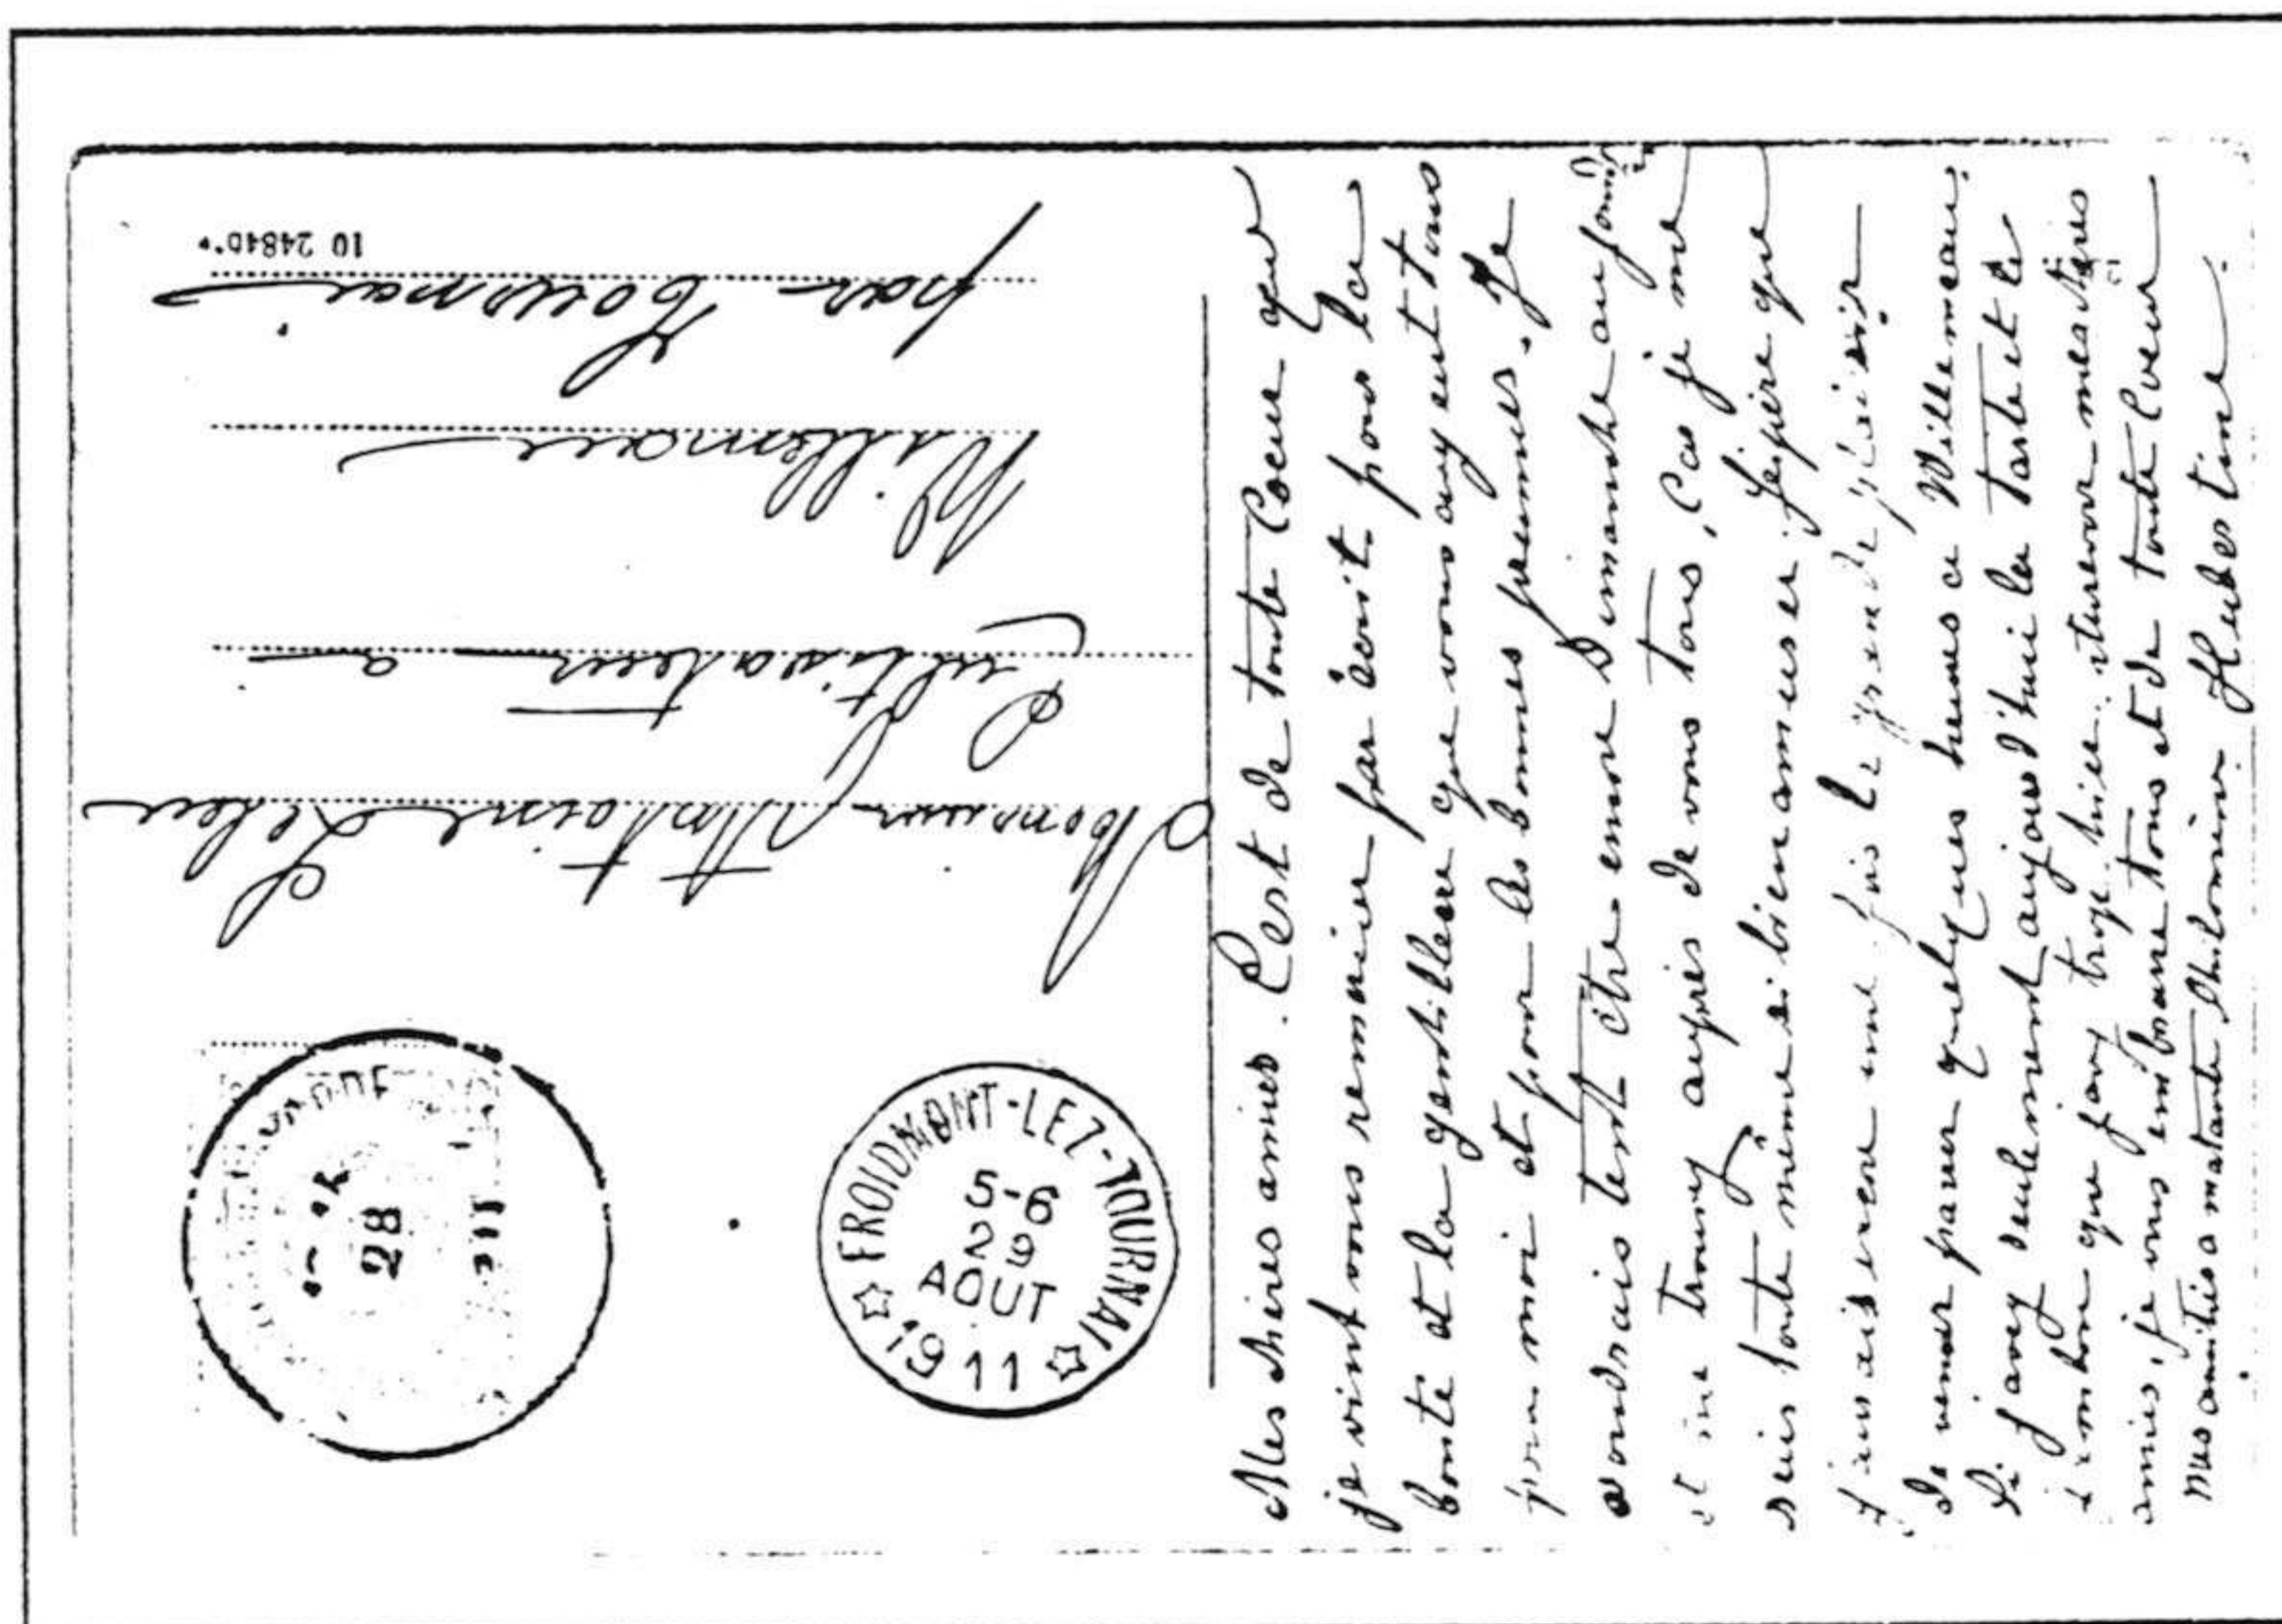 Mes chères amies. C'est de toute Coeur que
je vint vous remercier par écrit pour la
bonté et la gentillesse que vous avy eut tous
pour moi et pour les bonnes prunnes. Je
voudrais tent être encore Dimanche
et me trouvez auprès de vous tous, Car je me
suis toute même si bien amuser. J'éspère que
j'aurais encore une fois le grande plaisir
de venir passer quelques heures a Willemeau.
Si j'avez seulement aujourd'hui la tarte et le
que j'avez trope hier. mes chères
amies, je vous embrasse tous et de toute Coeur
mes amitiés a matante Philomène Hubertine.
FROIDMONT-LEZ-TOURNAI
5-6
28
AOUT
1911
28
Monsieur Antoine
Cultivateur a
Willemeau
par Tournai
10 24840.